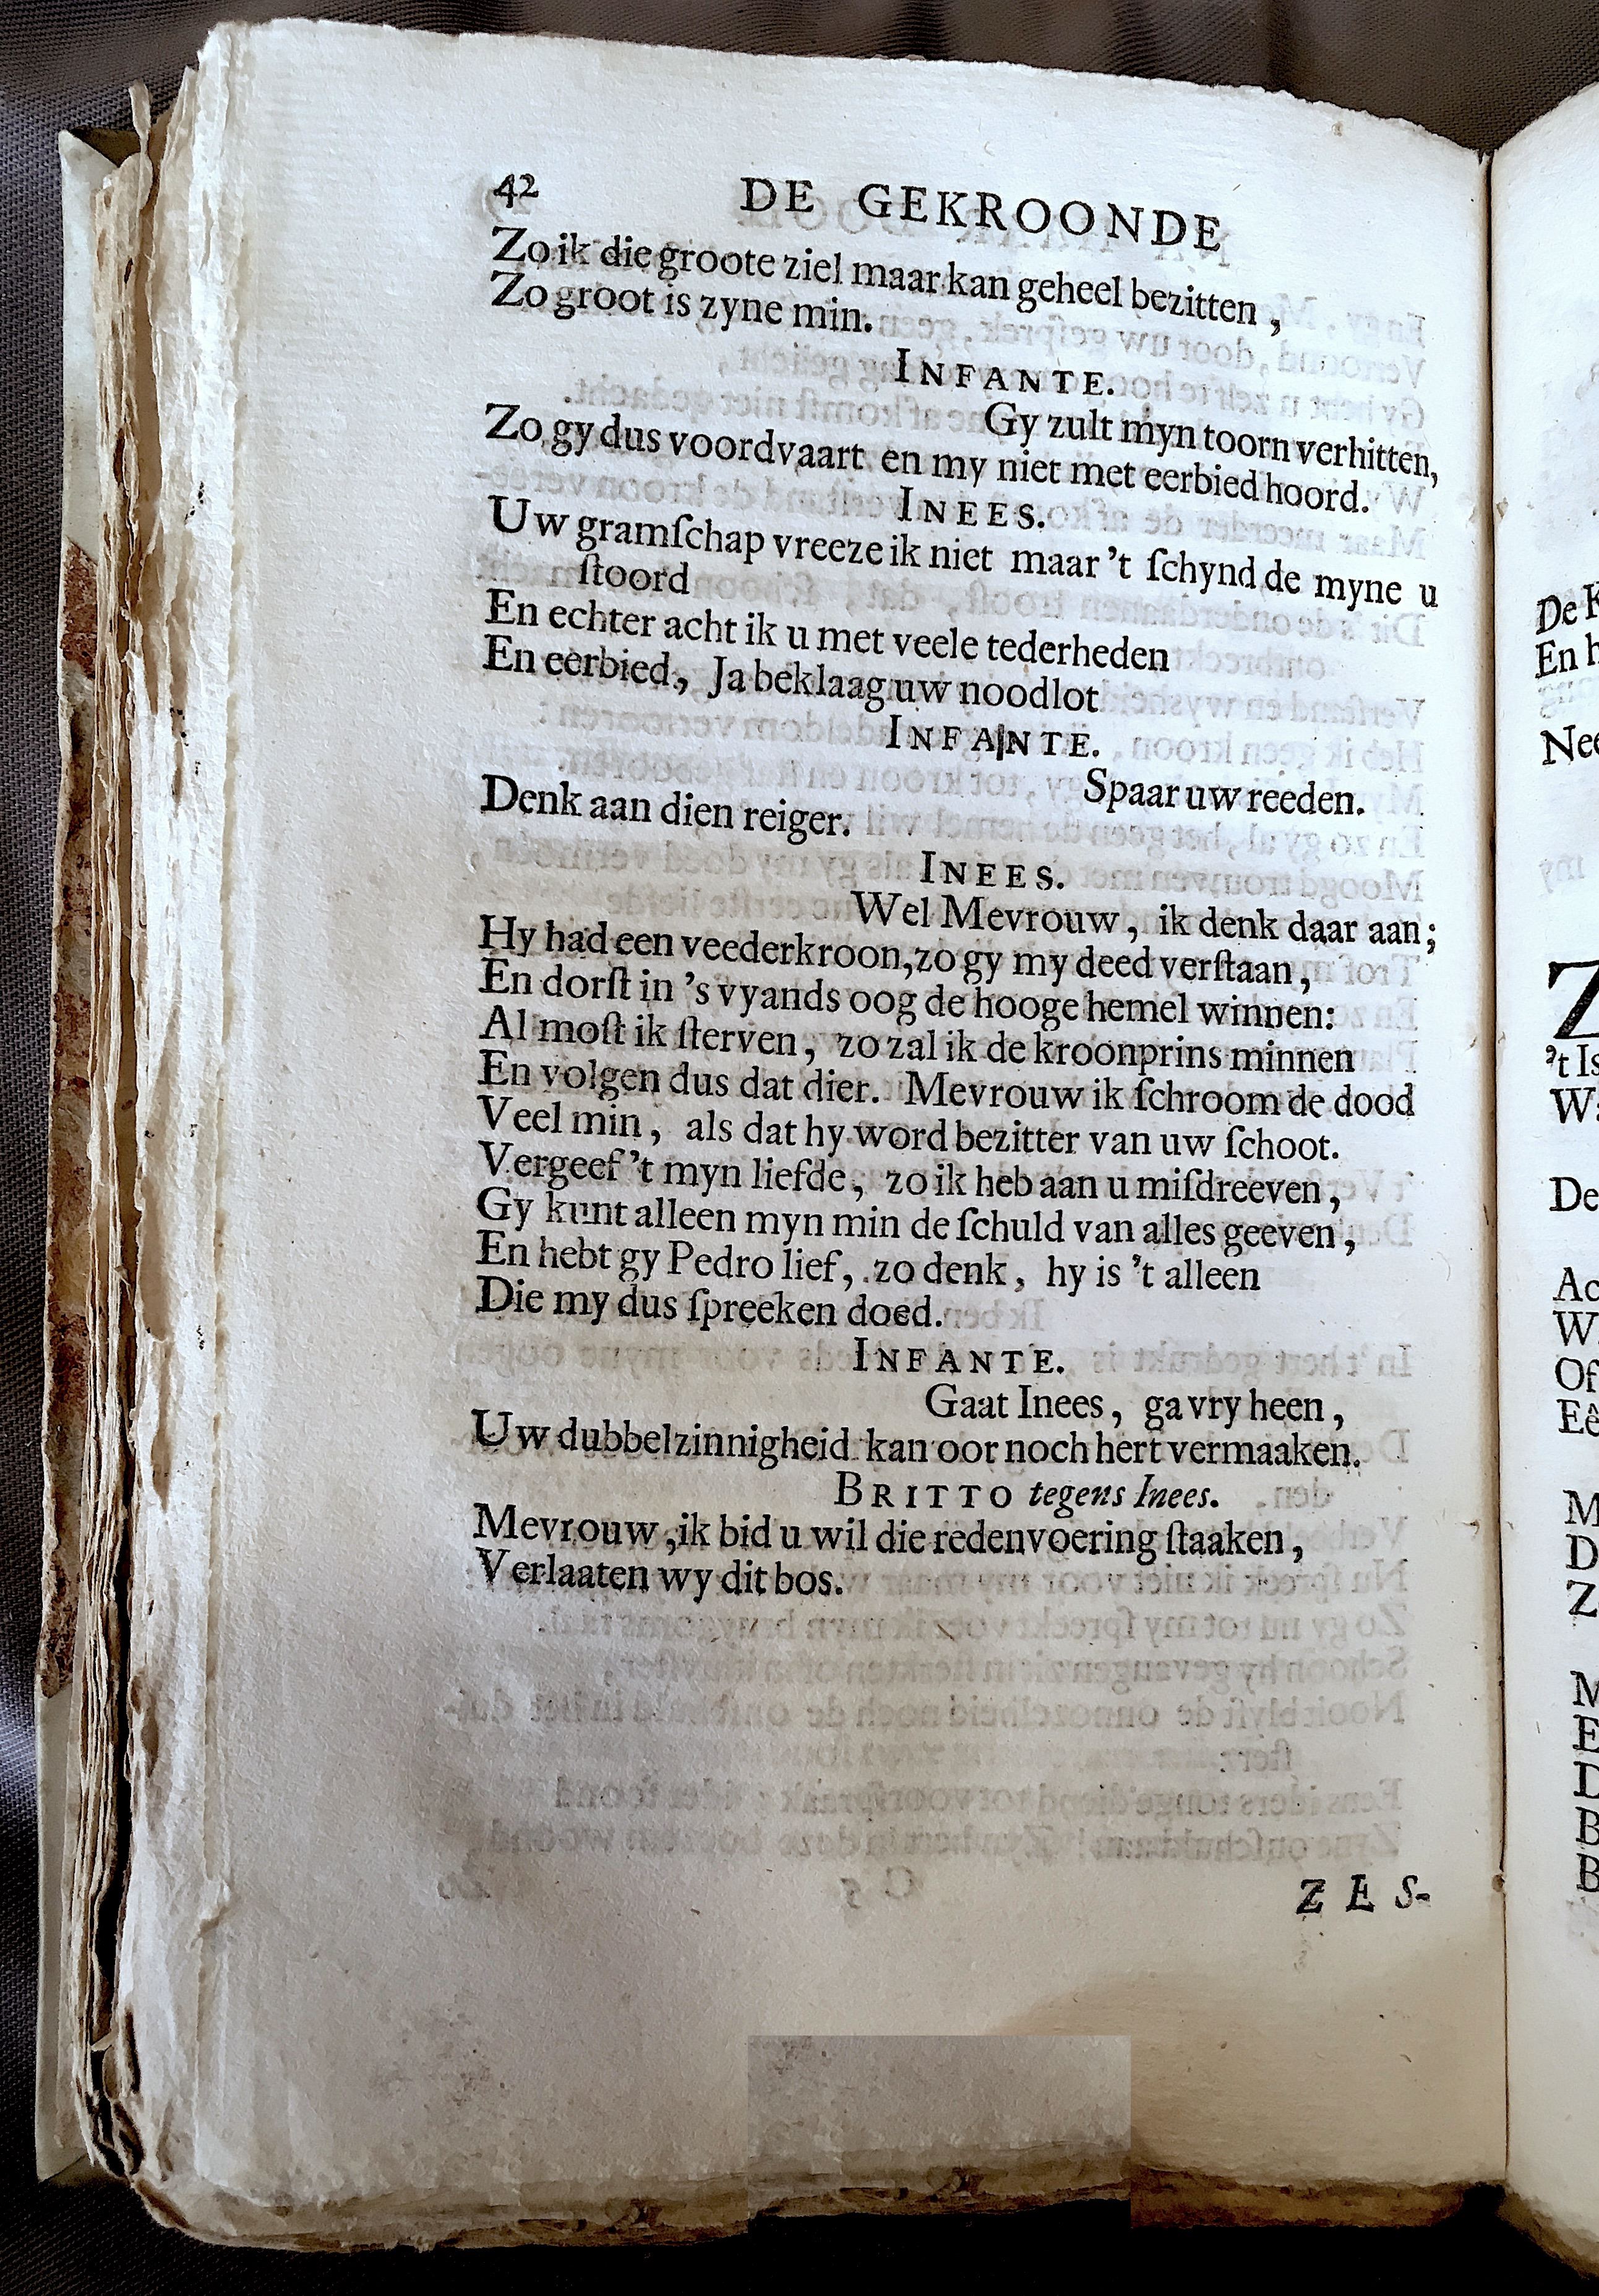 42 DE GEKROONDE
Zo ik die groote ziel maar kan geheel bezitten,
Zo groot is zyne min.
INFANTE.
Gy zult myn toorn verhitten,
Zo gy dus voordvaart en my niet met eerbied hoord.
INEES.
Uw gramſchap vreeze ik niet maar 't ſchynd de myne u
ſtoord
En echter acht ik u met veele tederheden
En eerbied, Ja beklaag uw noodlot
INFANTE.
Spaar uw reeden.
Denk aan dien reiger.
INEES.
Wel Mevrouw, ik denk daar aan;
Hy had een veederkroon, zo gy my deed verſtaan,
En dorſt in 's vyands oog de hooge hemel winnen:
Al moſt ik ſterven, zo zal ik de kroonprins minnen
En volgen dus dat dier. Mevrouw ik ſchroom de dood
Veel min, als dat hy word bezitter van uw ſchoot.
Vergeef 't myn liefde, zo ik heb aan u miſdreeven,
Gy kunt alleen myn min de ſchuld van alles geeven,
En hebt gy Pedro lief, zo denk, hy is 't alleen
Die my dus ſpreeken doed.
INFANTE.
Gaat Inees, ga vry heen,
Uw dubbelzinnigheid kan oor noch hert vermaaken.
BRITTO tegens Inees.
Mevrouw, ik bid u wil die redenvoering ſtaaken,
Verlaaten wy dit bos.
ZES-
De
En
Nee
Z
't Is
De
Of
M
D
Z
M
E
D
B
B